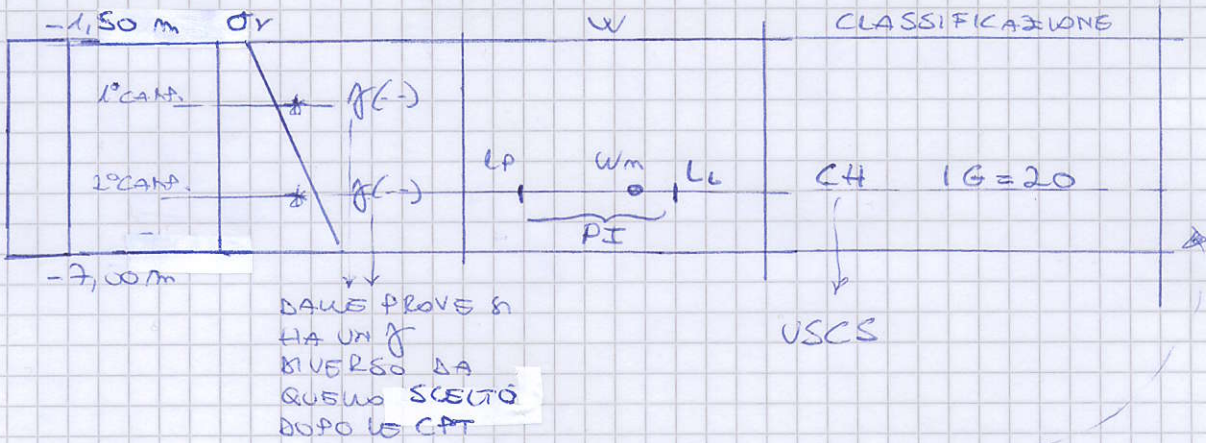 -1,50 m σv W CLASSIFICAZIONE
1° CAMP. γ(--)
2° CAMP. γ(--) LP Wn LL CH IG=20
PI
-7,00 m
DALLE PROVE SI
HA UN γ
DIVERSO DA
QUELLO SCELTO
DOPO LE CPT
USCS